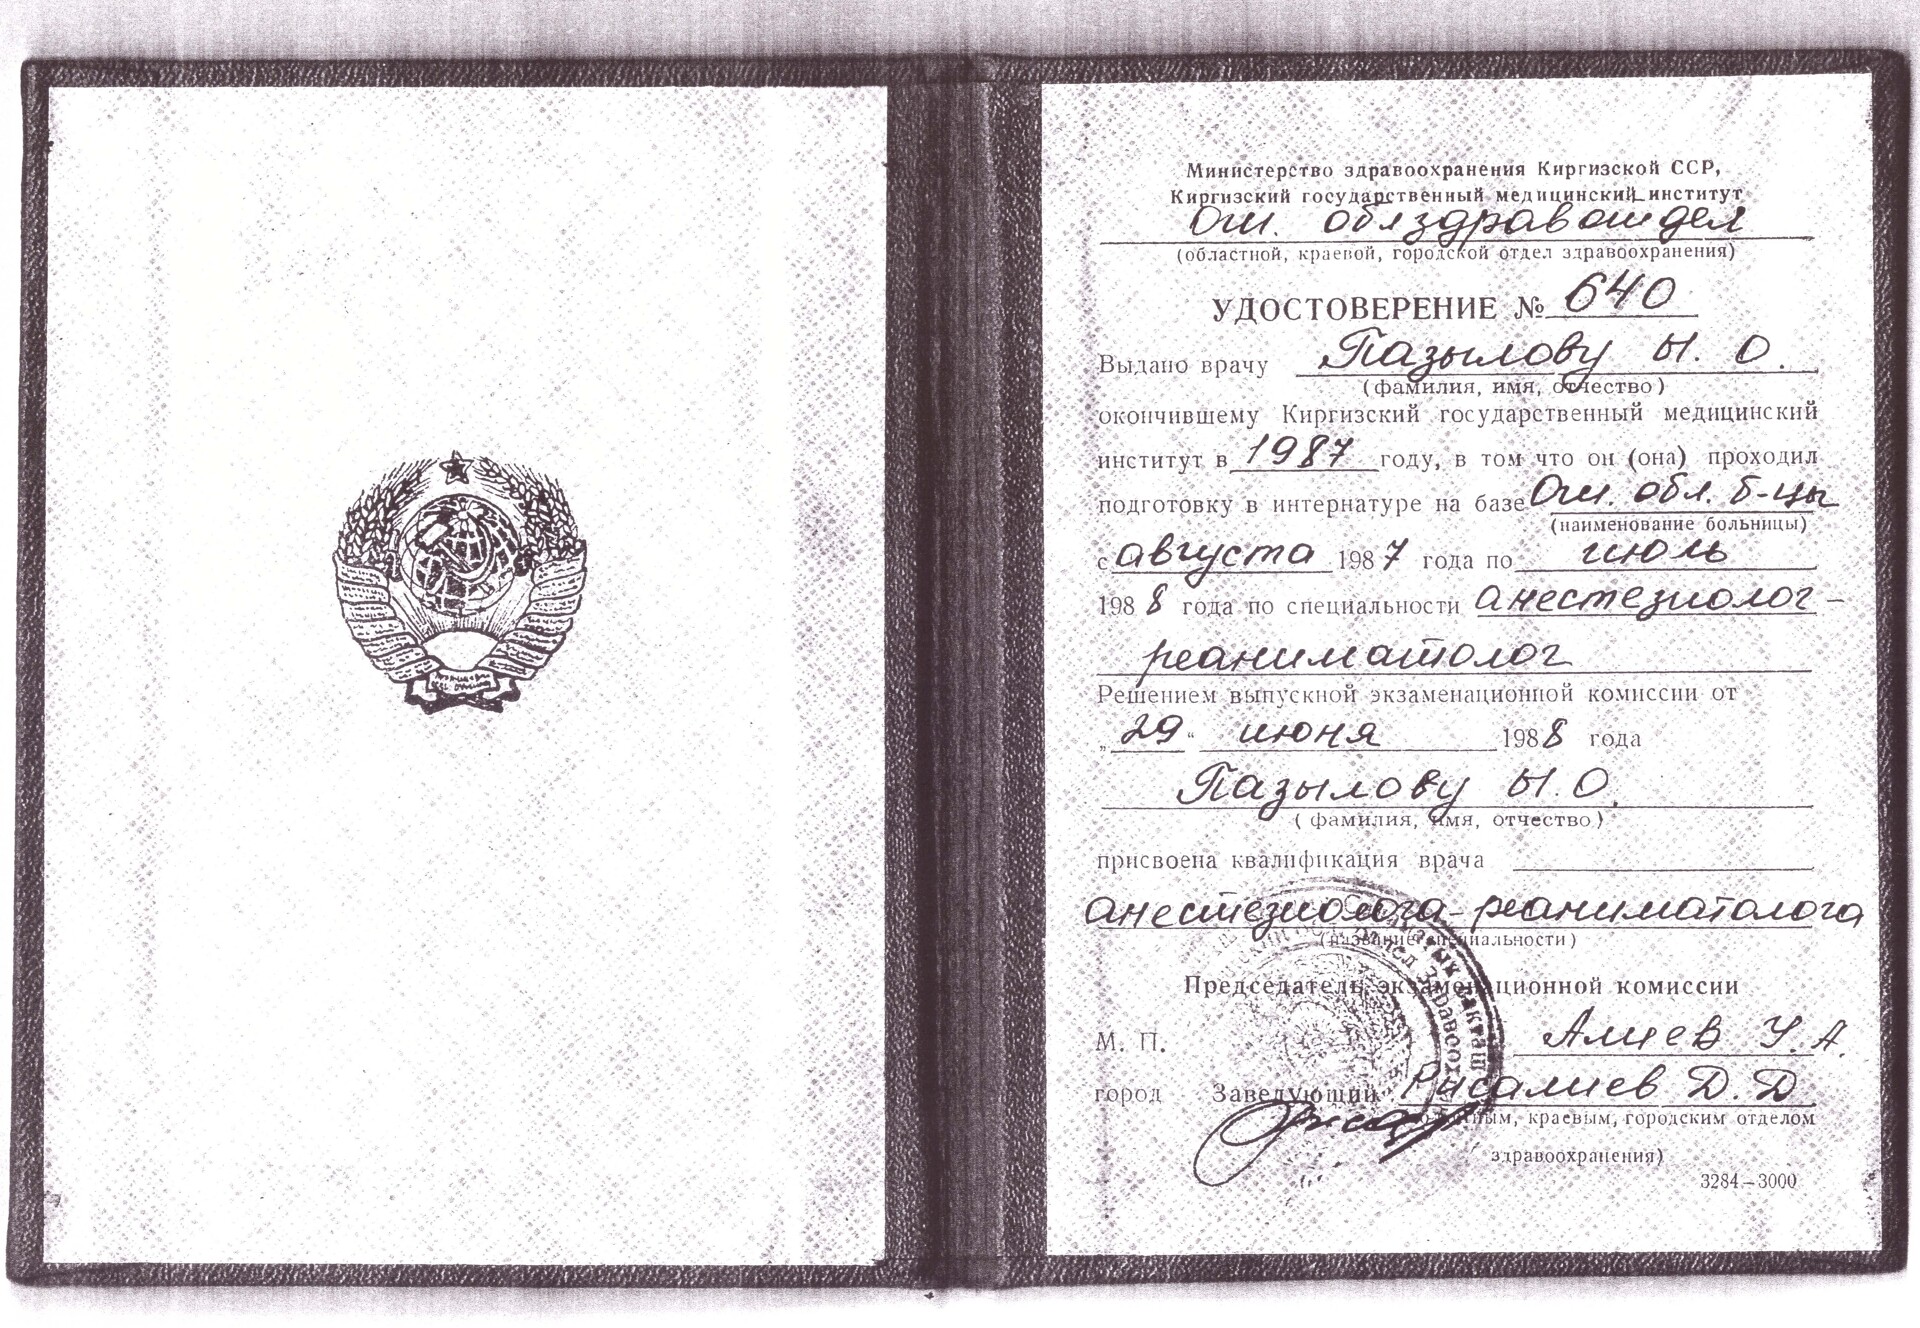 Министерство здравоохранения Киргизской ССР,
Киргизский государственный медицинский институт
Ош. облздравотдел
(областной, краевой, городской отдел здравоохранения)
УДОСТОВЕРЕНИЕ № 640
Выдано врачу Пазылову Ы. О.
(фамилия, имя, отчество)
окончившему Киргизский государственный медицинский
институт в 1987 году, в том что он (она) проходил
подготовку в интернатуре на базе Ош. обл. б-цы
(наименование больницы)
с августа 1987 года по июль
1988 года по специальности анестезиолог-
реаниматолог
Решением выпускной экзаменационной комиссии от
„29" июня 1988 года
Пазылову Ы. О.
(фамилия, имя, отчество)
присвоена квалификация врача
анестезиолога-реаниматолога
(название специальности)
Председатель экзаменационной комиссии
М. П. Алиев У. А.
город Заведующий Рысалиев Д. Д
краевым, городским отделом
здравоохранения)
3284—3000